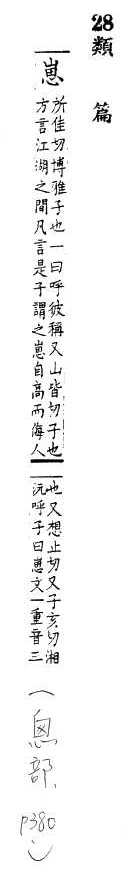 28 類篇
崽
所佳切博雅子也一曰呼彼稱又山皆切子也
方言江湖之間凡言是子謂之崽自高而侮人
也又想止切又子亥切湘
沅呼子曰崽文一重音三
(囟部, p380)